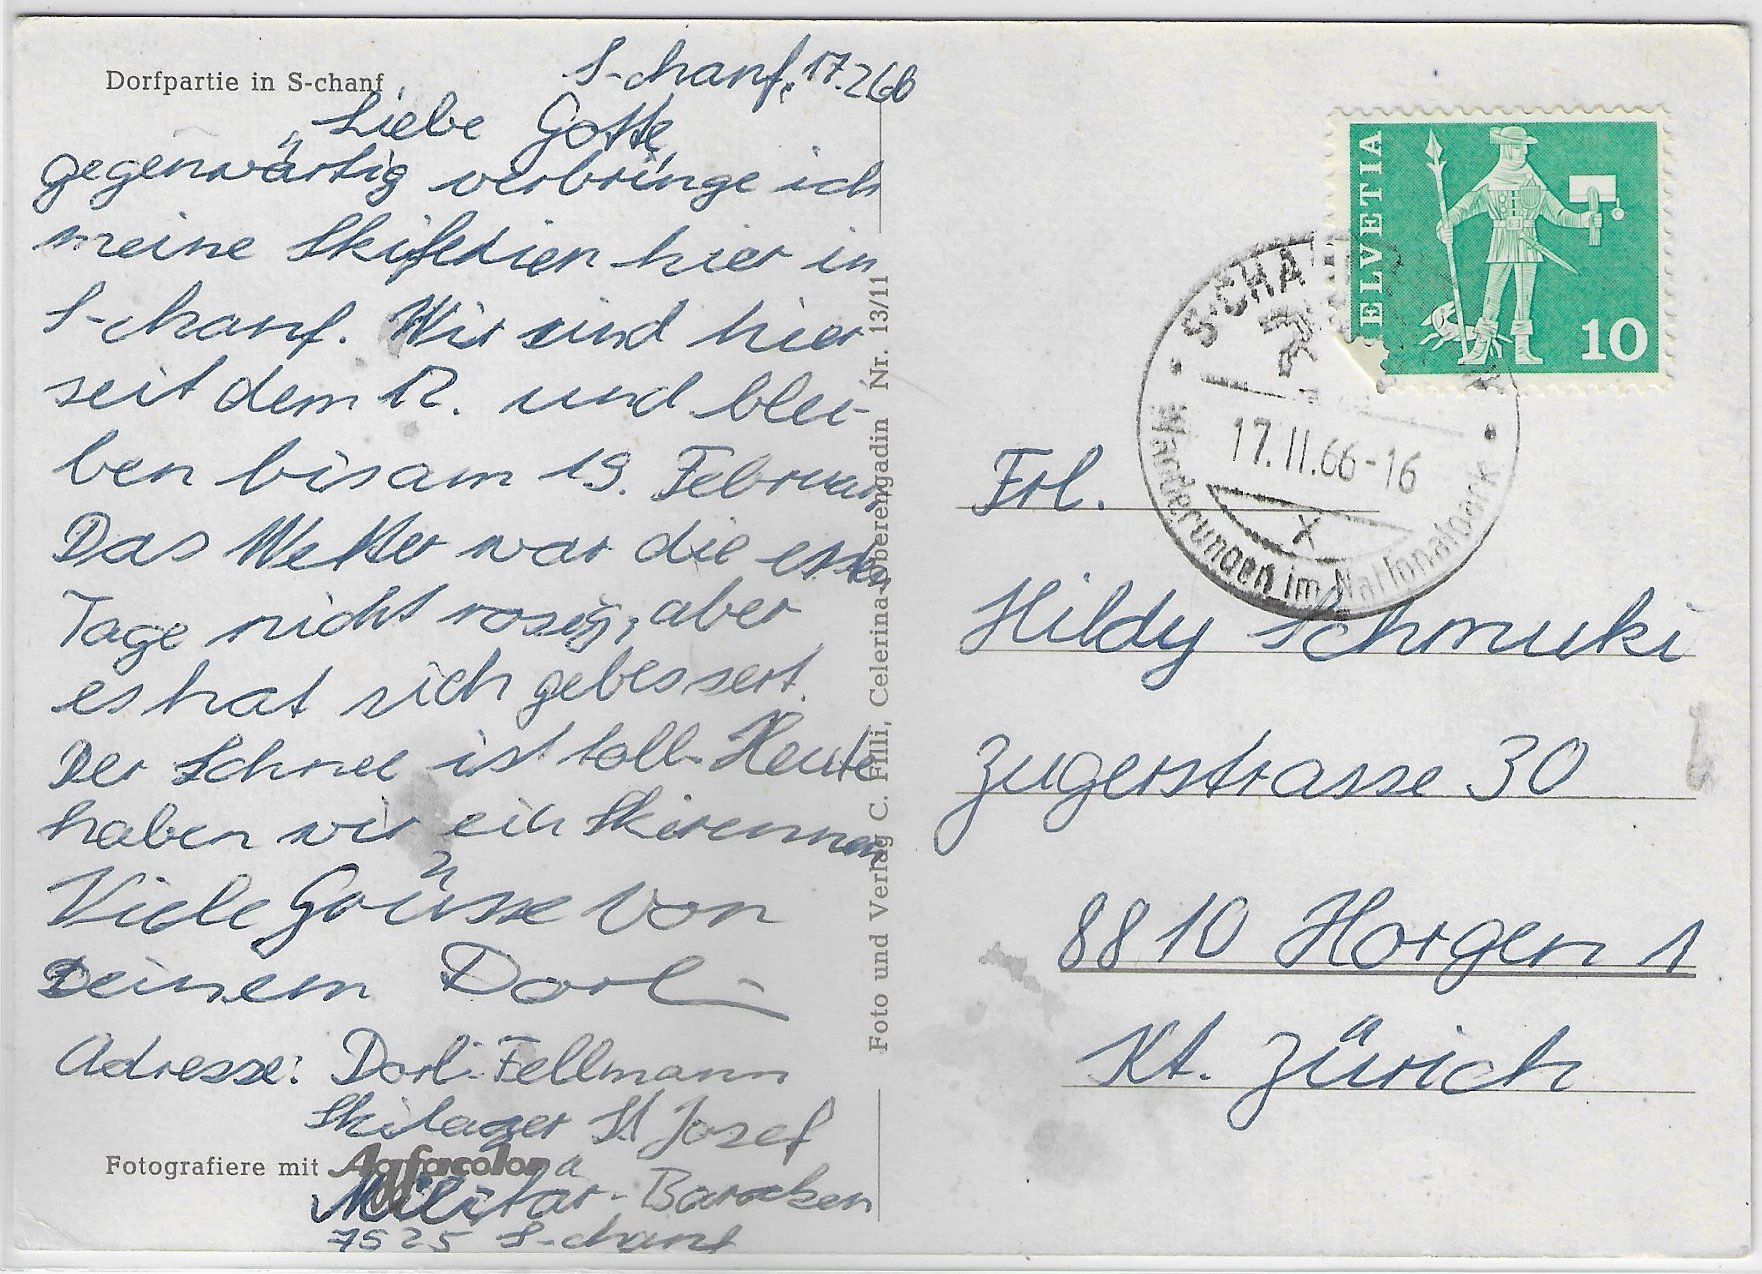 Dorfpartie in S-chanf
S-chanf, 17.2.66
Liebe Gotte,
gegenwärtig verbringe ich
meine Skiferien hier in
S-chanf. Wir sind hier
seit dem 12. und blei-
ben bis am 19. Februar
Das Wetter war die ersten
Tage nicht rosig, aber
es hat sich gebessert.
Der Schnee ist toll. Heute
haben wir ein Skirennen
Viele Grüsse von
Deinem Dorli
Adresse: Dorli Fellmann
Skilager St Josef
Militär-Baracken
7525 S-chanf
Fotografiere mit Agfacolor
Foto und Verlag C. Filli, Celerina-Oberengadin Nr. 13/11
HELVETIA
10
S-CHANF
17.II.66-16
X
Wanderungen im Nationalpark
Frl.
Hildy Schmuki
Zugerstrasse 30
8810 Horgen 1
Kt. Zürich